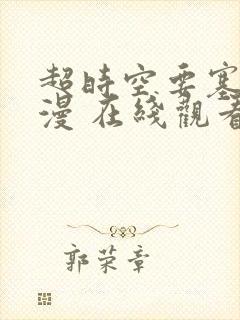 超時空要塞
漫 在綫觀看
郭荣章